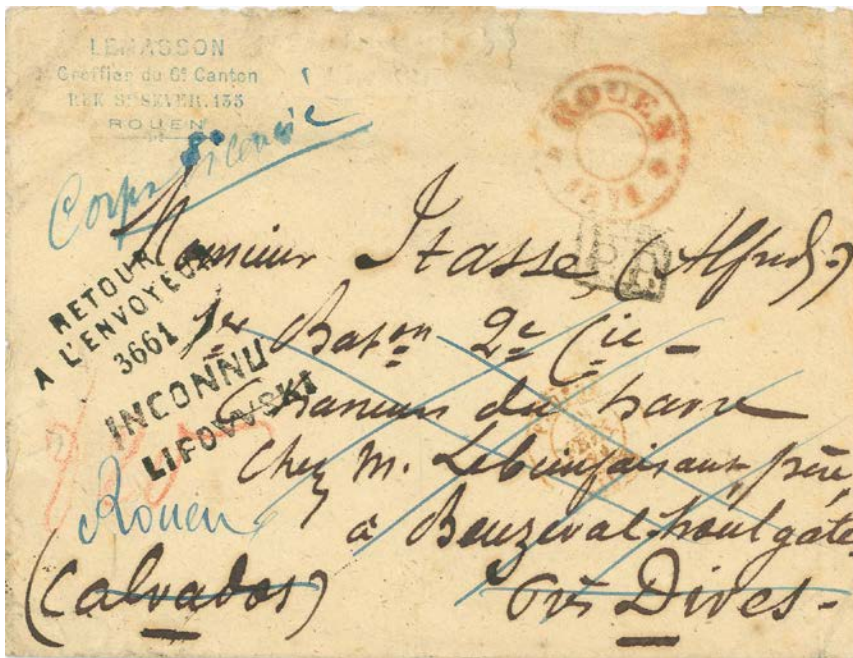 LEMASSON
Greffier du 6e Canton
RUE St SEVER. 135
ROUEN
Corps licencié
ROUEN
1871
P.P.
Monsieur Itasse (Alfred)
1er Baton 2e Cie -
Chasseurs du havre
Chez M. Lebienfaisant, père,
à Beuzeval-houlgate
(Calvados) près Dives -
RETOUR
A L'ENVOYEUR
3661
INCONNU
LIPOWSKI
Rouen